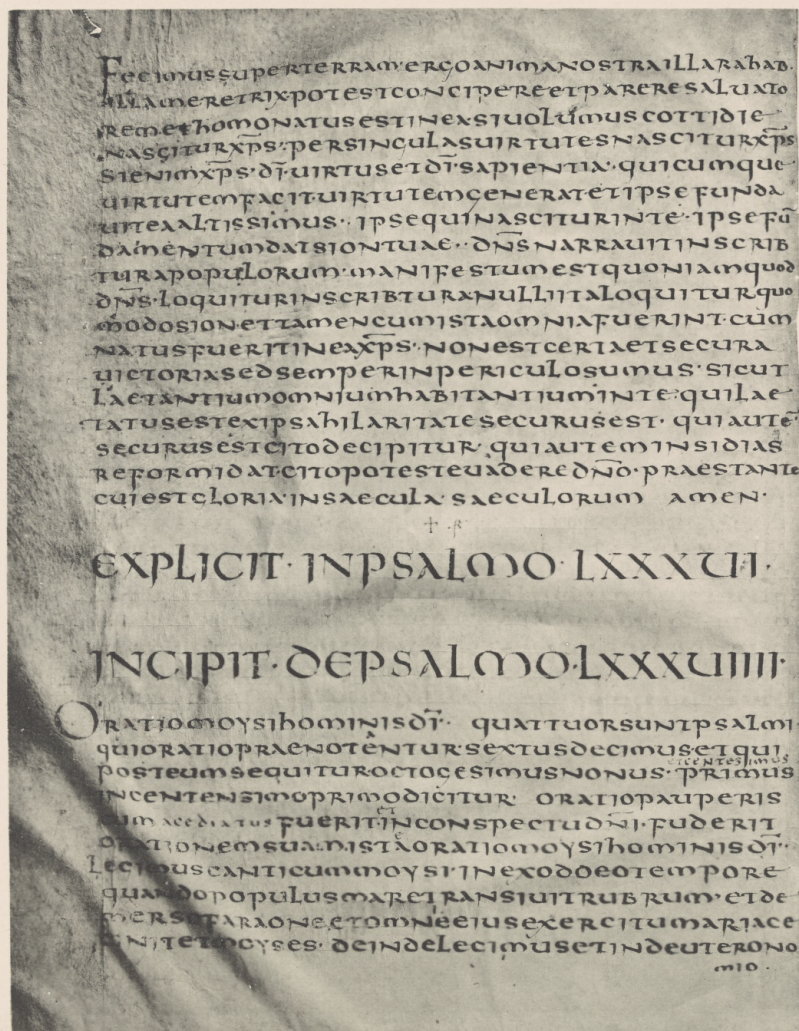 FECIMUSSUPERTERRAM·ERGOANIMANOSTRAILLARAHAB·
ILLAMERETRIX·POTESTCONCIPEREETPARERESALUATO
REMETHOMONATUSESTINEASIUOLUMUSCOTTIDIE
NASCITURXP̅S·PERSINGULASUIRTUTESNASCITURXP̅S
SIENIMXP̅S·DI̅·UIRTUSETDI̅·SAPIENTIA·QUICUMQUE
UIRTUTEMFACIT·UIRTUTEMGENERATETIPSEFUNDA
UITEAALTISSIMUS·IPSEQUINASCITURINTE·IPSEFU̅
DAMENTUMDATSIONTUAE··DN̅SNARRAUITINSCRIB
TURAPOPULORUM·MANIFESTUMESTQUONIAMQUOD
DN̅S·LOQUITURINSCRIBTURANULLIITALOQUITURQUO
MODOSION·ETTAMENCUMISTAOMNIAFUERINT·CUM
NATUSFUERITINEAXP̅S·NONESTCERTAETSECURA
UICTORIASEDSEMPERINPERICULOSUMUS·SICUT
LAETANTIUMOMNIUMHABITANTIUMINTE·QUILAE
TATUSESTEXIPSAHILARITATESECURUSEST·QUIAUTE̅
SECURUSESTCITODECIPITUR·QUIAUTEMINSIDIAS
REFORMIDAT·CITOPOTESTEUADEREDN̅O·PRAESTANTE
CUIESTGLORIA·INSAECULA·SAECULORUM AMEN·
EXPLICIT·INPSALMO·LXXXVI·
INCIPIT·DEPSALMO·LXXXVIIII·
ORATIOMOYSIHOMINISDI̅· QUATTUORSUNTPSALMI
QUIORATIOPRAENOTENTUR·SEXTUSDECIMUS·ETQUI
POSTEUMSEQUITUROCTOGESIMUSNONUS·PRIMUS
INCENTENSIMOPRIMODICITUR· ORATIOPAUPERIS
FUERIT·INCONSPECTUDN̅I·FUDERIT
ORATIONEMSUAM·ISTAORATIOMOYSIHOMINISDI̅·
LEGIMUSCANTICUMMOYSI·INEXODOEOTEMPORE
QUANDOPOPULUSMARETRANSIUITRUBRUM·ETDE
MERSOFARAONE·ETOMNEEIUSEXERCITUMARIACE
CINITETMOYSES·DEINDELEGIMUSETINDEUTERONO
MIO·